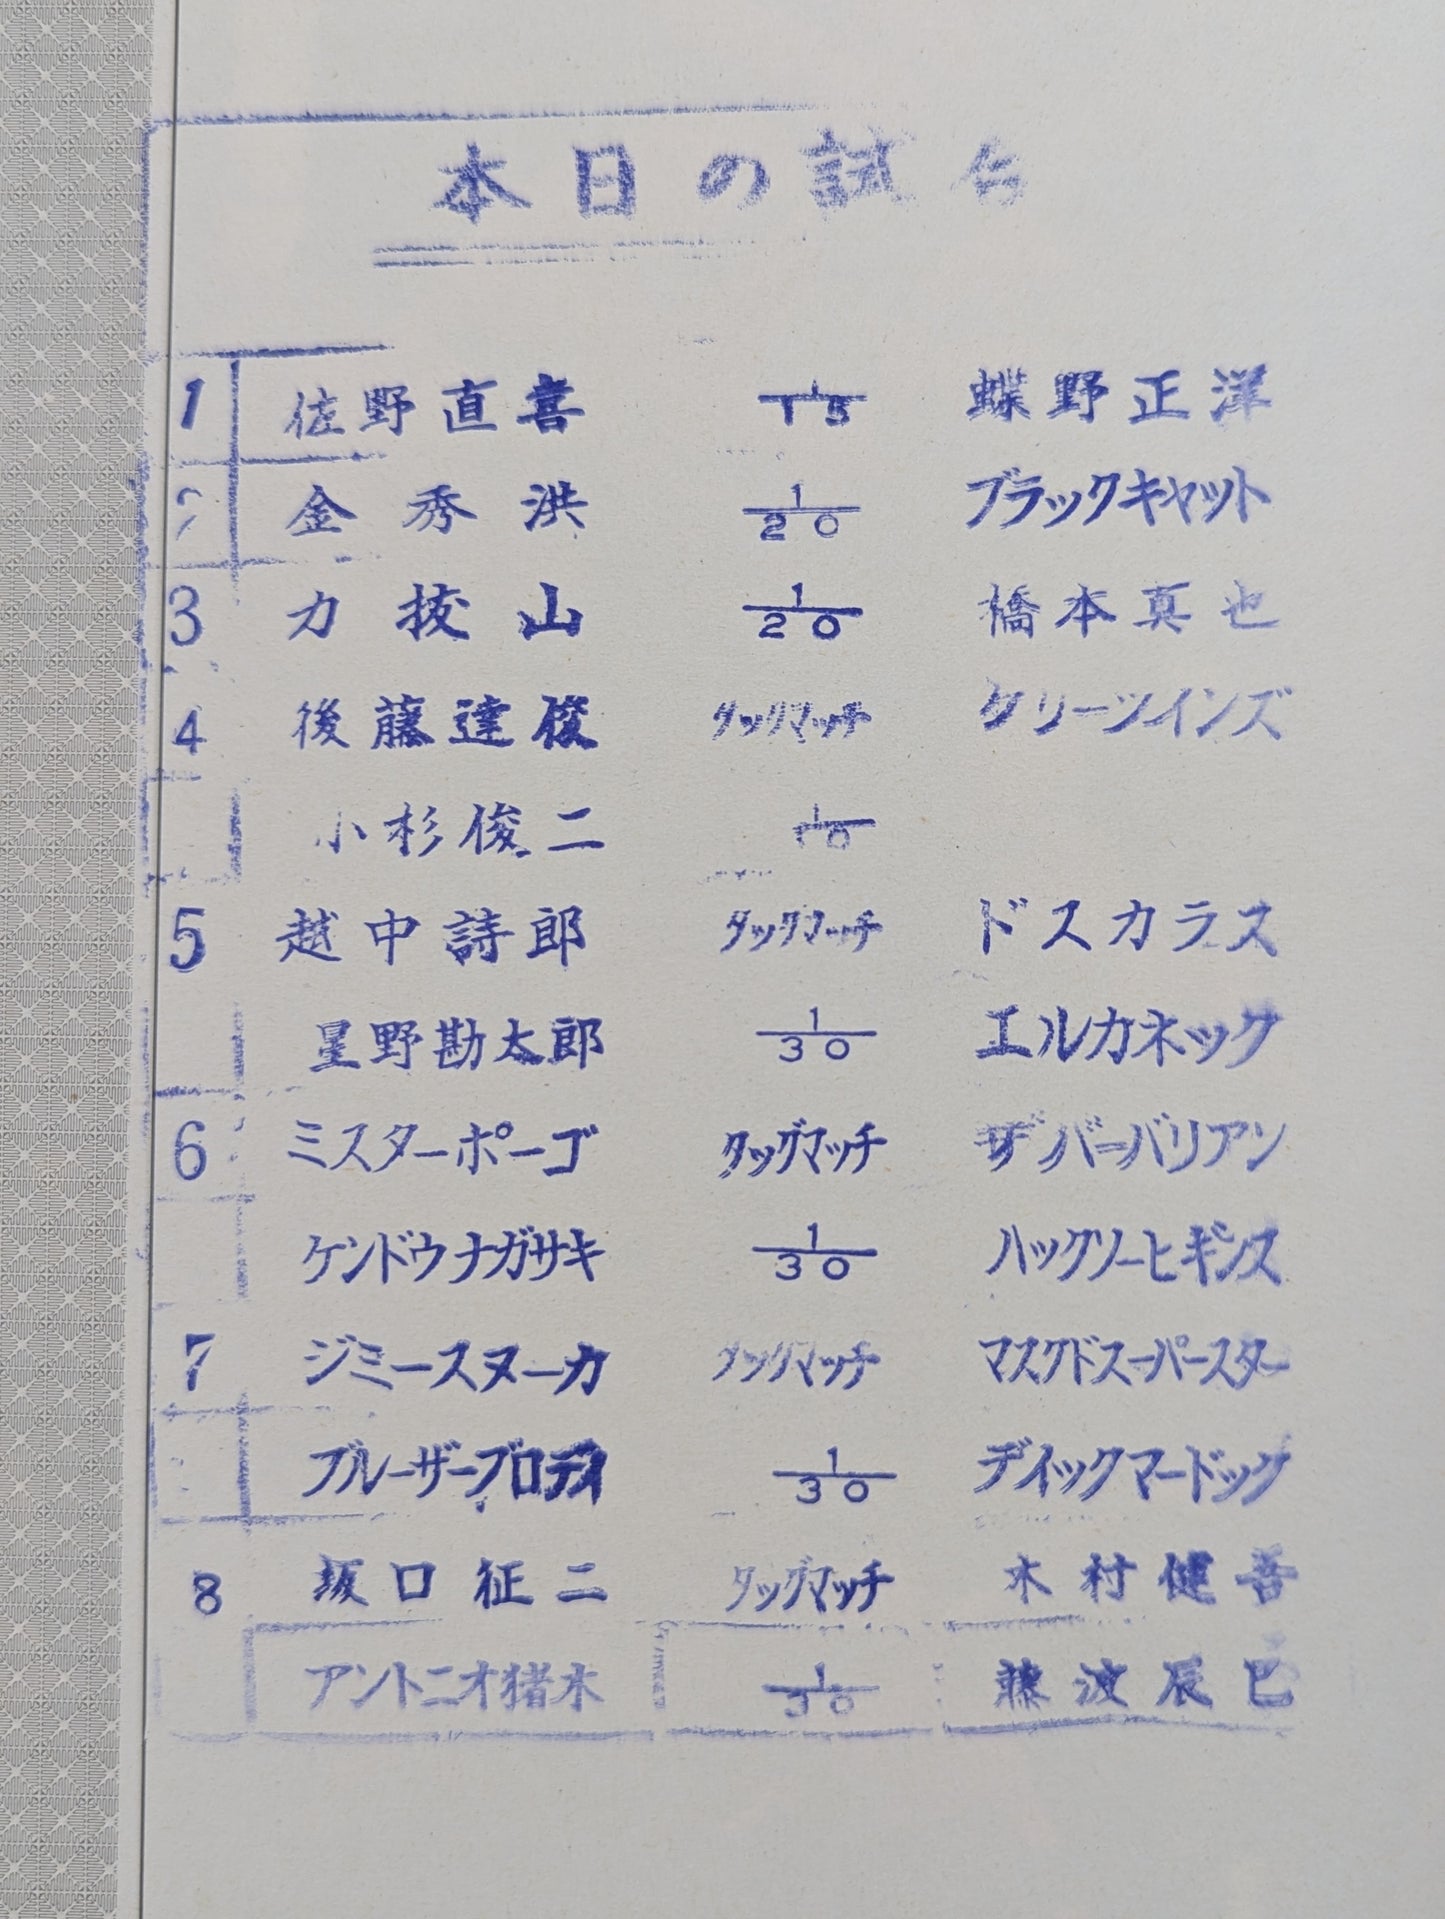 本日の試合
1 佐野直喜 1/15 蝶野正洋
2 金秀洪 1/20 ブラックキャット
3 力抜山 1/20 橋本真也
4 後藤達俊 タッグマッチ クリーツインズ
小杉俊二 1/10
5 越中詩郎 タッグマッチ ドスカラス
星野勘太郎 1/30 エルカネック
6 ミスターポーゴ タッグマッチ ザバーバリアン
ケンドウナガサキ 1/30 ハックソーヒギンズ
7 ジミースヌーカ タッグマッチ マスクドスーパースター
ブルーザーブロディ 1/30 ディックマードック
8 坂口征二 タッグマッチ 木村健吾
アントニオ猪木 1/30 藤波辰巳